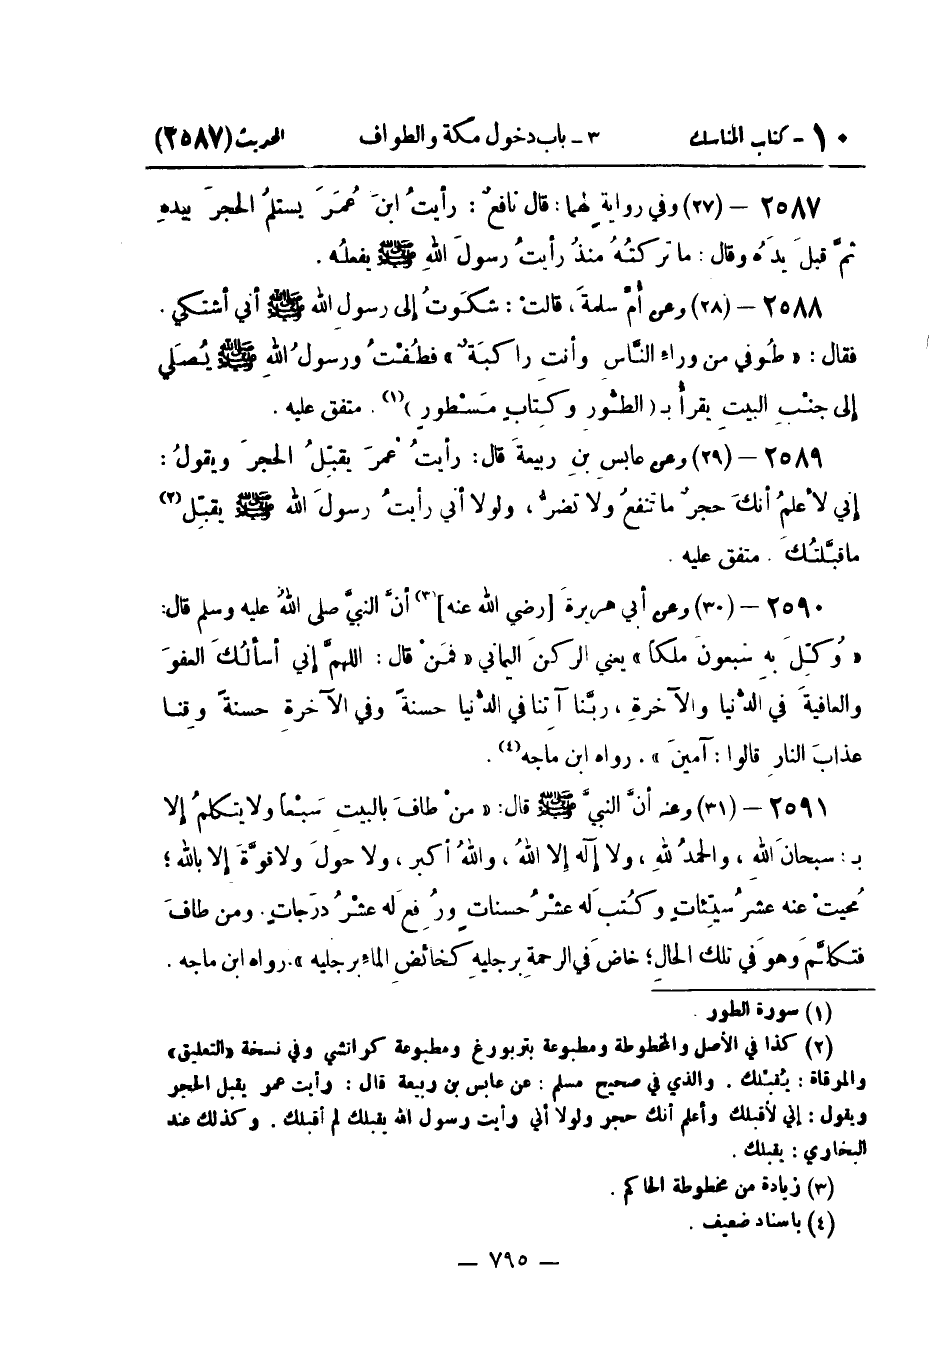 ١٠ - كتاب المناسك ٣ - باب دخول مكة والطواف الحديث (٢٥٨٧)
٢٥٨٧ - (٢٧) وفي رواية لهما : قال نافعٌ : رأيتُ ابنَ عُمَرَ يستلمُ الحجرَ بيدهِ
ثمَّ قبلَ يدَهُ وقال : ما تركتُهُ منذُ رأيتُ رسولَ اللهِ ﷺ يفعلُه .
٢٥٨٨ - (٢٨) وعن أُمِّ سلمةَ ، قالتْ : شكوتُ إلى رسولِ الله ﷺ أني أشتكي .
فقال : « طُوفي من وراءِ النَّاسِ وأنتِ راكبَةٌ » فطُفْتُ ورسولُ اللهِ ﷺ يُصلي
إلى جنْبِ البيتِ يقرأُ بـ ( الطُّورِ وكتابٍ مَسْطورٍ )(١) . متفق عليه .
٢٥٨٩ - (٢٩) وعن عابسِ بنِ ربيعةَ قال : رأيتُ عُمرَ يقبِّلُ الحجرَ ويقولُ :
إني لأعلمُ أنكَ حجرٌ ما تنفعُ ولا تضرُّ ، ولولا أني رأيتُ رسولَ الله ﷺ يقبّل(٢)
ما قبَّلتُكَ . متفق عليه .
٢٥٩٠ - (٣٠) وعن أبي هريرةَ [رضي الله عنه](٣) أنَّ النبيَّ صلى اللهُ عليه وسلم قال :
« وُكِّلَ بهِ سَبعونَ ملَكاً » يعني الركنَ اليماني « فمَنْ قال : اللهمَّ إني أسألُكَ العفوَ
والعافيةَ في الدُّنيا والآخرةِ ، ربَّنا آتنا في الدُّنيا حسنةً وفي الآخرةِ حسنةً وقنا
عذابَ النارِ قالوا : آمينَ » . رواه ابن ماجه(٤) .
٢٥٩١ - (٣١) وعنه أنَّ النبيَّ ﷺ قال : « منْ طافَ بالبيتِ سَبْعاً ولا يتكلمُ إلا
بـ : سبحانَ اللهِ ، والحمدُ للهِ ، ولا إلَه إلا اللهُ ، واللهُ أكبر ، ولا حولَ ولا قوَّةَ إلا بالله ؛
مُحيتْ عنه عشرُ سيِّئاتٍ وكُتبَ له عشْرُ حسناتٍ ورُفعَ له عشْرُ درَجاتٍ . ومن طافَ
فتكلَّمَ وهوَ في تلك الحالِ ؛ خاضَ في الرحمةِ برجليهِ كخائضِ الماءِ برجليه » . رواه ابن ماجه .
(١) سورة الطور .
(٢) كذا في الأصل والمخطوطة ومطبوعة بتربورغ ومطبوعة كراتشي وفي نسخة «التعليق»
والمرقاة : يُقبّلك . والذي في صحيح مسلم : عن عابس بن ربيعة قال : رأيت عمر يقبل الحجر
ويقول : إني لأقبلك وأعلم أنك حجر ولولا أني رأيت رسول الله يقبلك لم أقبلك . وكذلك عند
البخاري : يقبلك .
(٣) زيادة من مخطوطة الحاكم .
(٤) باسناد ضعيف .
— ٧٩٥ —